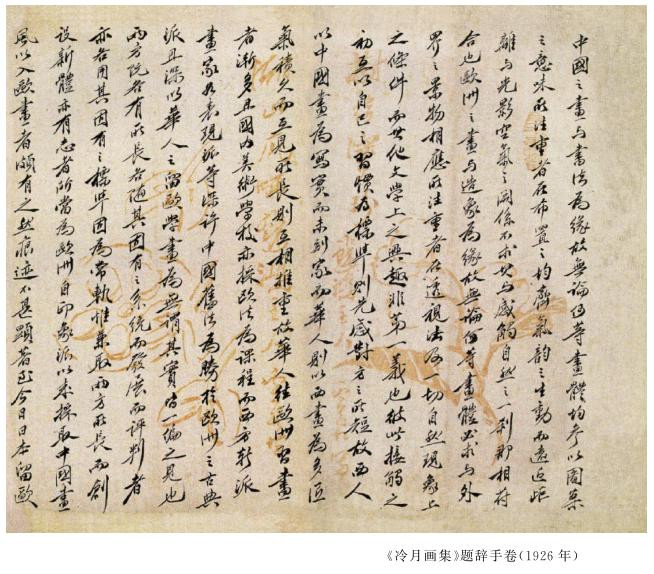 中國之畫與書法為緣故無論何等畫體均參以圖案
之意味所注重者在布置之均齊氣韵之生動而遠近距
離與光影空氣之關係不求其與感觸自然之一刹那相符
合也歐洲之畫與造象為緣故無論何等畫體必求與外
界之景物相應所注重者在透視法及一切自然現象上
之條件而其他文學上之興趣非第一義也彼此接觸之
初互以自己之習慣為標準則先感對方之所短故西人
以中國畫為寫實而未到家而華人則以西畫為多匠
氣積久而互見所長則互相推重故華人往歐洲習畫
者漸多且國內美術學校亦採歐法為課程而西方新派
畫家如表現派等深許中國舊法為勝於歐洲之古典
派且深以華人之留歐學畫為無謂其實皆一偏之見也
兩方既各有所長各隨其固有之系統而發展而評判者
亦各用其固有之標準因為常軌惟兼取兩方所長而創
設新體亦有志者所當為歐洲自印象派以來採取中國畫
風以入歐畫者頗有之然痕迹不甚顯著至今日日本留歐
《冷月画集》题辞手卷(1926年)